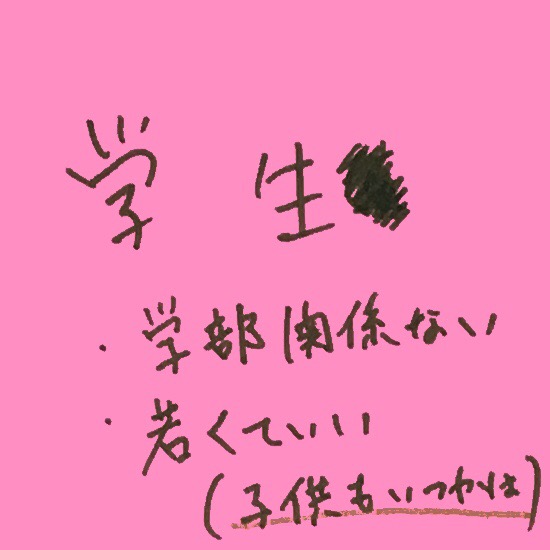 学 生
・学部関係ない
・若くていい
(子供もいつかは)